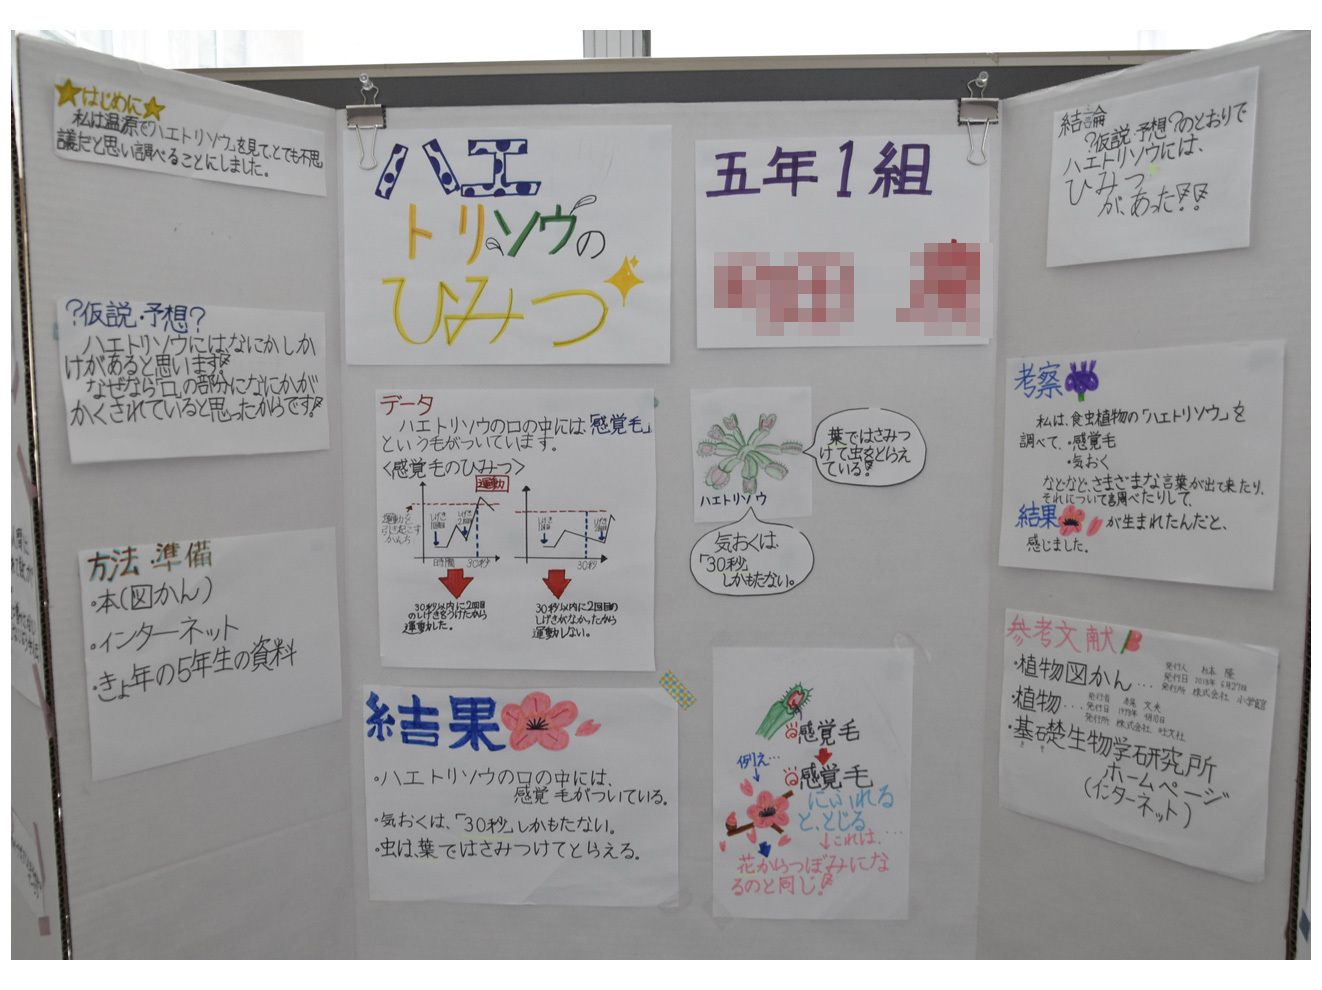 はじめに
私は温源で「ハエトリソウ」を見て、とても不思
議だと思い調べることにしました。
?仮説・予想?
ハエトリソウにはなにかしか
けがあると思います!!
なぜなら「口」の部分になにかが
かくされていると思ったからです!!
方法・準備
・本(図かん)
・インターネット
・きょ年の5年生の資料
ハエ
トリソウの
ひみつ
五年1組
データ
ハエトリソウの口の中には「感覚毛」
という毛がついています。
<感覚毛のひみつ>
運動
運動を
引き起こす
かんち
しげき
1回目
しげき
2回目
時間
30秒
しげき
1回目
30秒
30秒以内に2回目
のしげきをうけたから
運動した。
30秒以内に2回目の
しげきがなかったから
運動しない。
ハエトリソウ
葉ではさみつ
けて虫をとらえ
ている!!
気おくは、
「30秒」
しかもたない。
結果
・ハエトリソウの口の中には、
感覚毛がついている。
・気おくは、「30秒」しかもたない。
・虫は、葉ではさみつけてとらえる。
感覚毛
感覚毛
にふれる
と、とじる
例え…
これは、…
花からつぼみにな
るのと同じ!!
結論
?仮説・予想?のとおりで
ハエトリソウには、
ひみつ
が、あった!!
考察
私は、食虫植物の「ハエトリソウ」を
調べて、・感覚毛
・気おく
などなど、さまざまな言葉が出て来たり、
それについて調べたりして、
結果が生まれたんだと、
感じました。
参考文献
・植物図かん…
発行人
発行日 2018年 6月27日
発行所 株式会社 小学館
・植物…
発行者
発行日
発行所 株式会社 旺文社
・基礎生物学研究所
きそ
ホームページ
(インターネット)